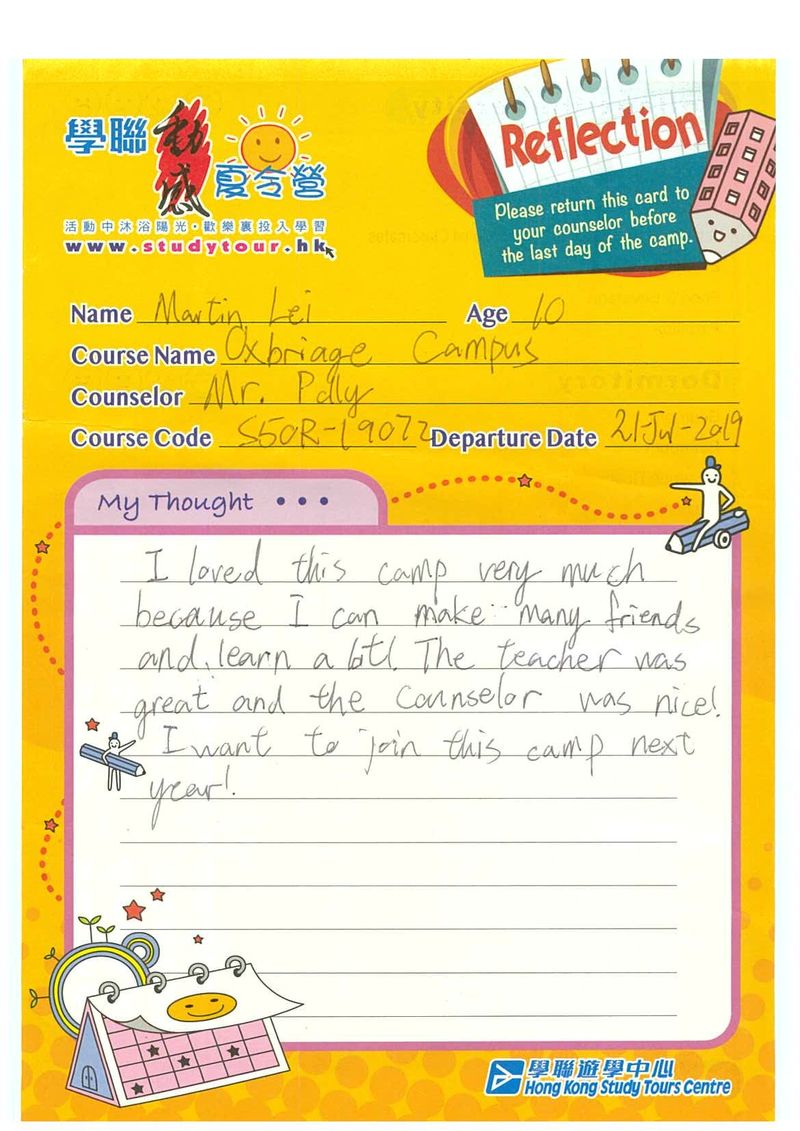 學聯 動感 夏令營
活動中沐浴陽光·歡樂裏投入學習
www.studytour.hk
Reflection
Please return this card to
your counselor before
the last day of the camp.
Name Martin Lei Age 10
Course Name Oxbriage Campus
Counselor Mr.
Course Code S50R-19072 Departure Date 21-Jul-2019
My Thought • • •
I loved this camp very much
because I can make many friends
and learn a lot. The teacher was
great and the Counselor was nice!
I want to join this camp next
year!
學聯遊學中心
Hong Kong Study Tours Centre